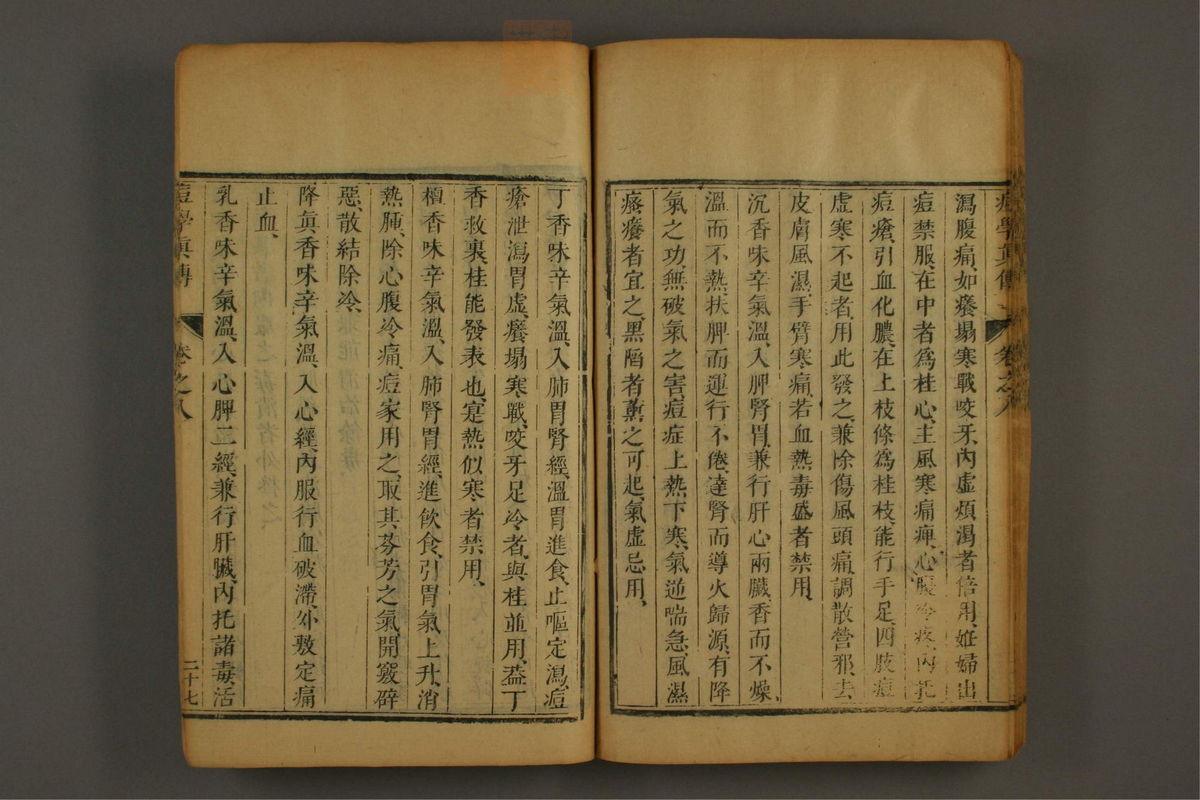 痘學真傳 卷之八
瀉腹痛、如癢塌寒戰咬牙、內虛煩渴者倍用、妊婦出
痘禁服、在中者為桂心、主風寒痛痺、心腹冷疼、內托
痘瘡、引血化膿、在上枝條為桂枝、能行手足、四肢痘
虛寒不起者、用此發之、兼除傷風頭痛、調散營邪、去
皮膚風濕、手臂寒痛、若血熱毒盛者禁用、
沉香味辛氣溫、入脾腎胃、兼行肝心兩臟、香而不燥、
溫而不熱、扶脾而運行不倦、達腎而導火歸源、有降
氣之功、無破氣之害、痘症上熱下寒、氣逆喘急、風濕
瘙癢者宜之、黑陷者薰之可起、氣虛忌用、
丁香味辛氣溫、入肺胃腎經、溫胃進食、止嘔定瀉、痘
瘡泄瀉胃虛、癢塌寒戰、咬牙足冷者、與桂並用、葢丁
香救裏、桂能發表也、寔熱似寒者禁用、
檀香味辛氣溫、入肺腎胃經、進飲食、引胃氣上升、消
熱腫、除心腹冷痛、痘家用之、取其芬芳之氣、開竅辟
惡、散結除冷、
降眞香味辛氣溫、入心經、內服行血破滯、外敷定痛
止血、
乳香味辛氣溫、入心脾二經、兼行肝臟、內托諸毒、活
痘學眞傳 卷之八 二十七